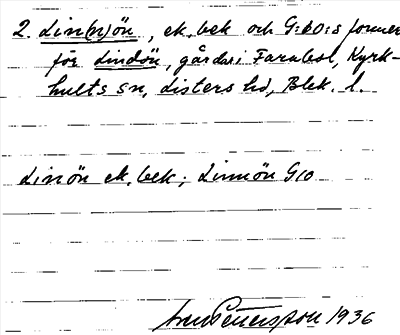 2. Lin(n)ön, ek. bek och G:bO:s former
för Lindön, gård i Farabol, Kyrk-
hults sn, Listers hd, Blek. l.
Linön ek. bek; Linnön GlO
Pettersson 1936